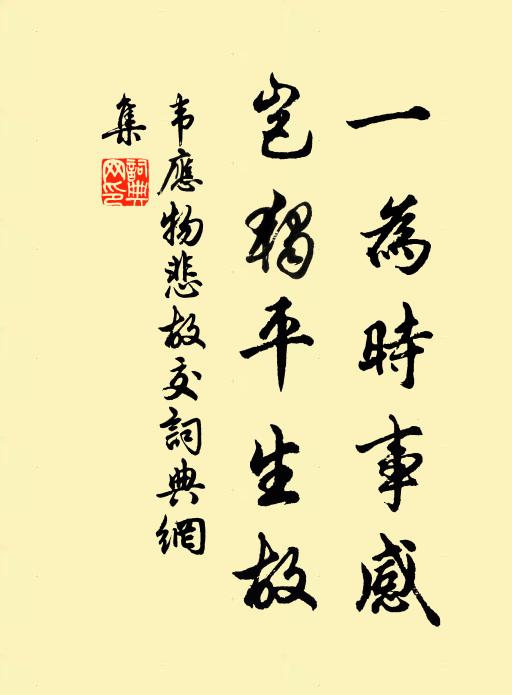 一為時事感
豈獨平生故
韦應物悲故交詞典網
集
詞典網印